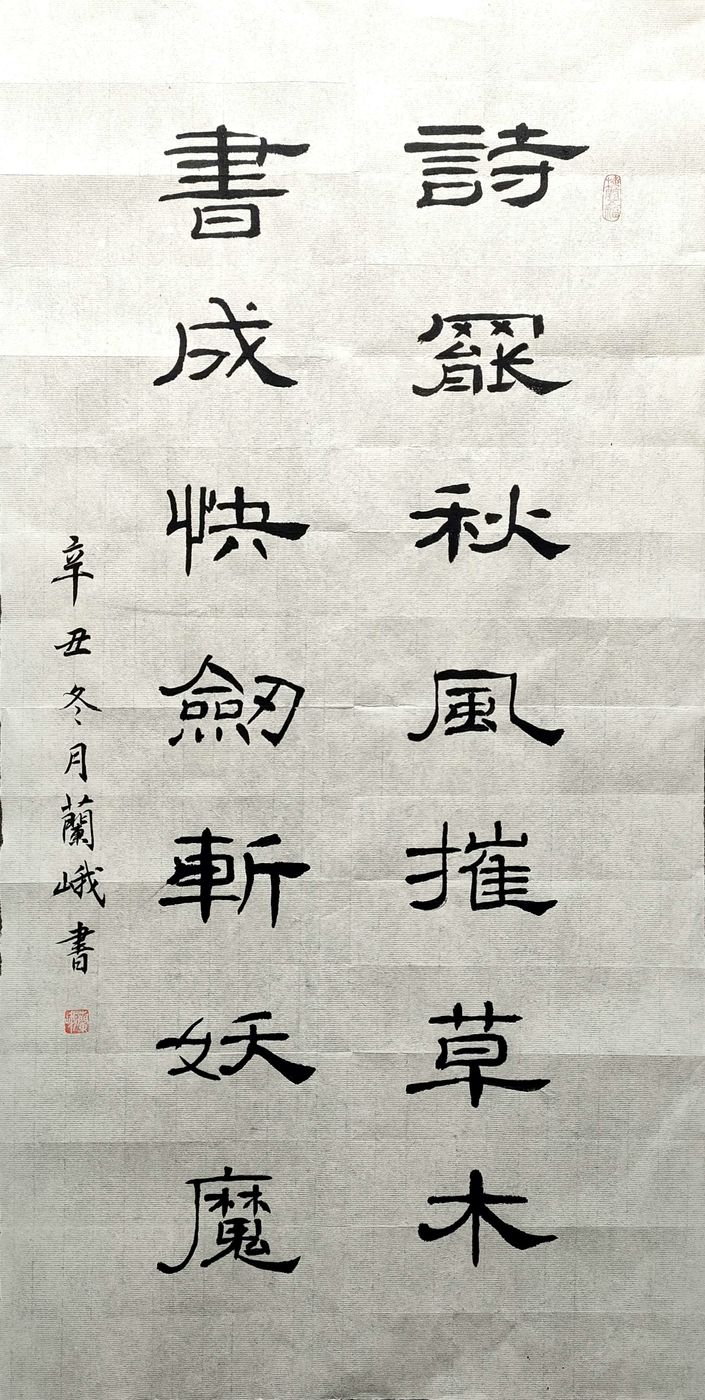 詩罷秋風摧草木
書成快劒斬妖魔
辛丑冬月蘭峨書